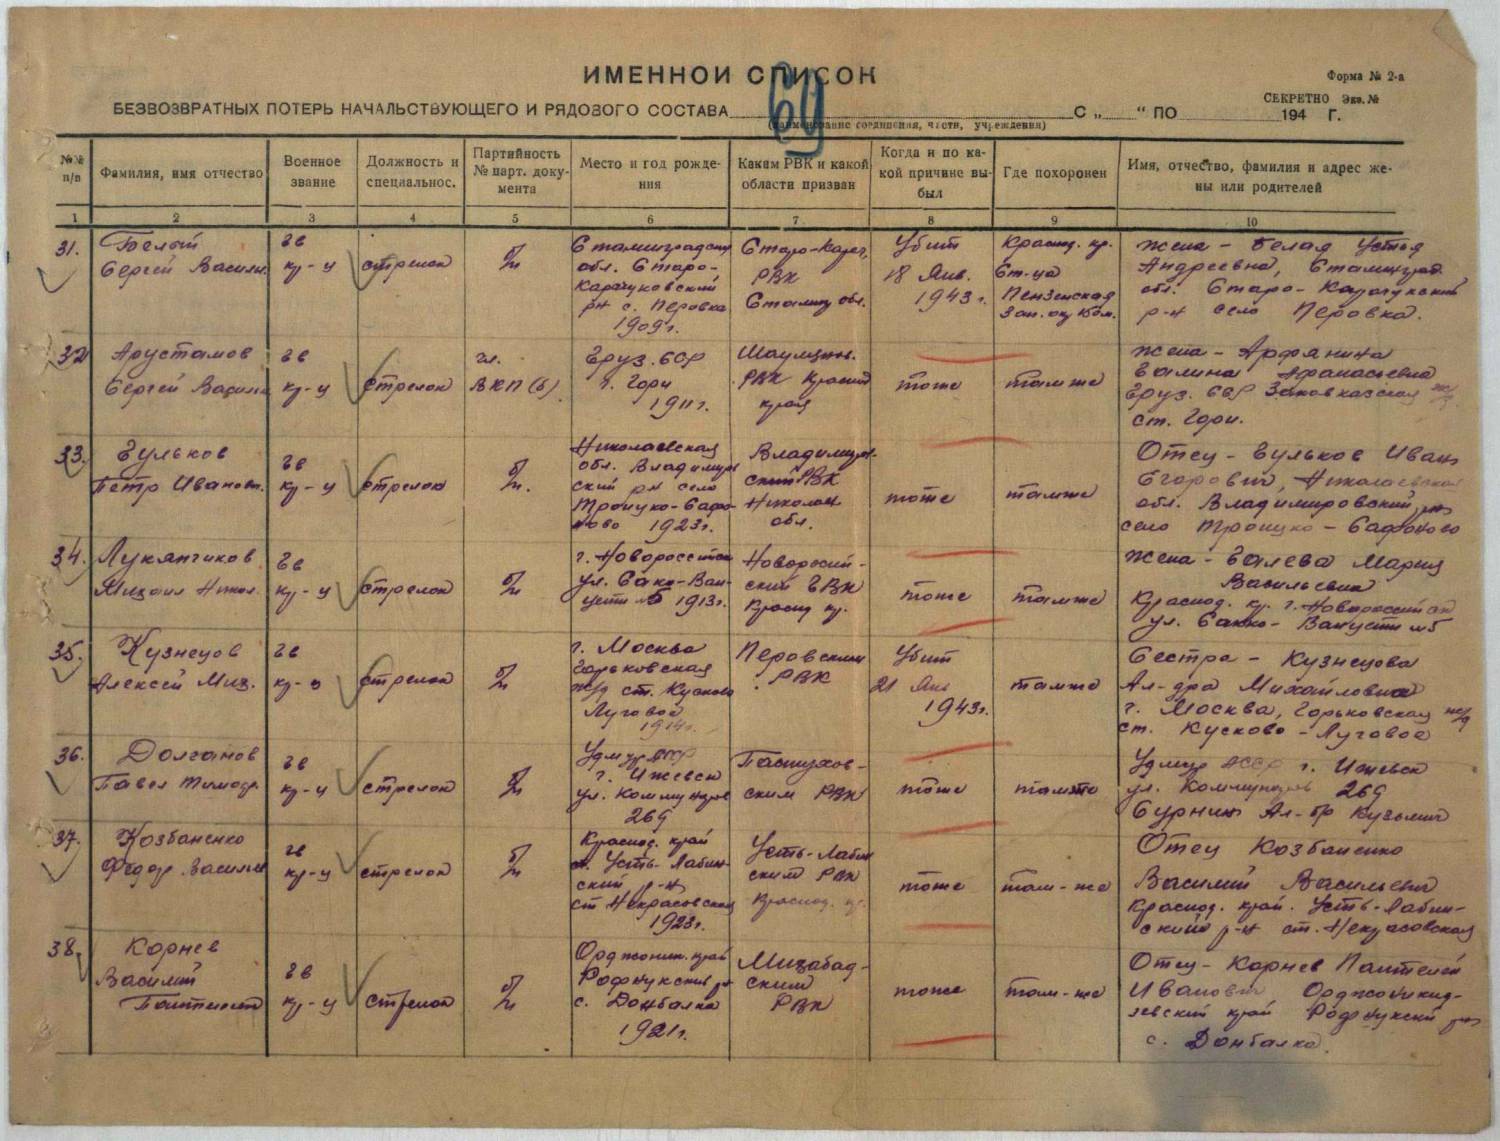 ИМЕННОЙ СПИСОК
69
Форма № 2-а
СЕКРЕТНО Экз. №
БЕЗВОЗВРАТНЫХ ПОТЕРЬ НАЧАЛЬСТВУЮЩЕГО И РЯДОВОГО СОСТАВА С „ “ ПО 194 Г.
(наименование соединения, части, учреждения)
№№ п/п
Фамилия, имя отчество
Военное звание
Должность и специальнос.
Партийность № парт. документа
Место и год рождения
Каким РВК и какой области призван
Когда и по какой причине выбыл
Где похоронен
Имя, отчество, фамилия и адрес жены или родителей
1 2 3 4 5 6 7 8 9 10
31.
Белый
Сергей Васильев.
гв
кр-ц
стрелок
б/п
Сталинградская
обл. Старо-
Карачуковский
рн с. Перовка
1909г.
Старо-Карач.
РВК
Сталингр обл.
Убит
18 Янв.
1943г.
Краснод. кр.
Ст-ца
Пензенская
Жена - Белая Устья
Андреевна, Сталинград.
обл. Старо-Карачукский
р-н село Перовка.
32
Арустамов
Сергей Василь
гв
кр-ц
стрелок
чл.
ВКП(б)
Груз.ССР
г. Гори
1911г.
Шаумян.
РВК Красно
края
тоже
там же
Жена -
Галина Афанасьевна
Груз. ССР Закавказская ж/д
ст. Гори.
33.
Гульков
Петр Иванов.
гв
кр-ц
стрелок
б/п.
Николаевская
обл. Владимиров
ский рн село
Троицко-Сафо-
ново 1923г.
Владимиров-
ский РВК
Николаев
обл.
тоже
там же
Отец - Гульков Иван
Егорович, Николаевская
обл. Владимировский рн
село Троицко - Сафоново
34.
Лукянчиков
Михаил Никол.
гв
кр-ц
стрелок
б/п
г. Новороссийск
ул. Сако-Ван-
цети №5 1913г.
Новороссий-
ский ГВК
Краснод кр.
тоже
там же
Жена - Галева Мария
Васильевна
Краснод. кр. г. Новороссийск
ул. Сакко-Ванцетти №5
35.
Кузнецов
Алексей Мих.
гв
кр-ц
стрелок
б/п
г. Москва
Горьковская
ж/д ст. Кусково
Луговое
1914г.
Перовским
РВК
Убит
21 Янв
1943г.
там же
Сестра - Кузнецова
Ал-дра Михайловна
г. Москва, Горьковская ж/д
ст. Кусково - Луговое
36.
Долганов
Павел Тимоф.
гв
кр-ц
стрелок
б/п
Удмур АССР
г. Ижевск
ул. Коммунаров
269
Пастухов-
ским РВК
тоже
там же
Удмур АССР г. Ижевск
ул. Коммунаров 269
Сурнин Ал-др Кузьмич
37.
Козбаненко
Федор Васильев
гв
кр-ц
стрелок
б/п
Краснод. край
Усть-Лабин-
ский р-н
ст Некрасовская
1923г.
Усть-Лабин
ским РВК
Краснод. кр.
тоже
там-же
Отец Козбаненко
Василий Васильевич
Краснод. край. Усть-Лабин-
ский р-н ст. Некрасовская
38.
Корнев
Василий
Пантелеев
гв
кр-ц
стрелок
б/п
Орджоник. край
с. Донбалка
1921г.
ским
РВК
тоже
там-же
Отец - Корнев Пантелей
Иванович Орджоникид-
зевский край
с. Донбалка.